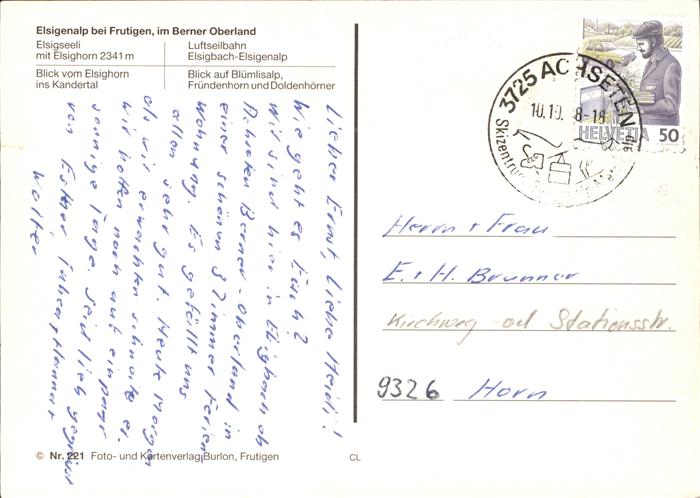 Elsigenalp bei Frutigen, im Berner Oberland
Elsigseeli
mit Elsighorn 2341 m
Luftseilbahn
Elsigbach-Elsigenalp
Blick vom Elsighorn
ins Kandertal
Blick auf Blümlisalp,
Fründenhorn und Doldenhörner
Lieber Ernst, liebe Heidi!
Wie geht es Euch?
Wir sind hier in Elsigbach ob
Berner-Oberland in
einer schönen 3 Zimmer Ferien
wohnung. Es gefällt uns
allen sehr gut. Heute Morgen
als wir erwachten schneite er.
Wir hoffen noch auf ein paar
sonnige Tage. Seid lieb gegrüsst
von Esther
Walter
© Nr. 221 Foto- und Kartenverlag Burlon, Frutigen
CL
3725 ACHSETEN
10.10. 8-18
Skizentrum
HELVETIA 50
Herrn + Frau
E. + H. Brunner
Kirchweg od Stationsstr.
9326 Horn